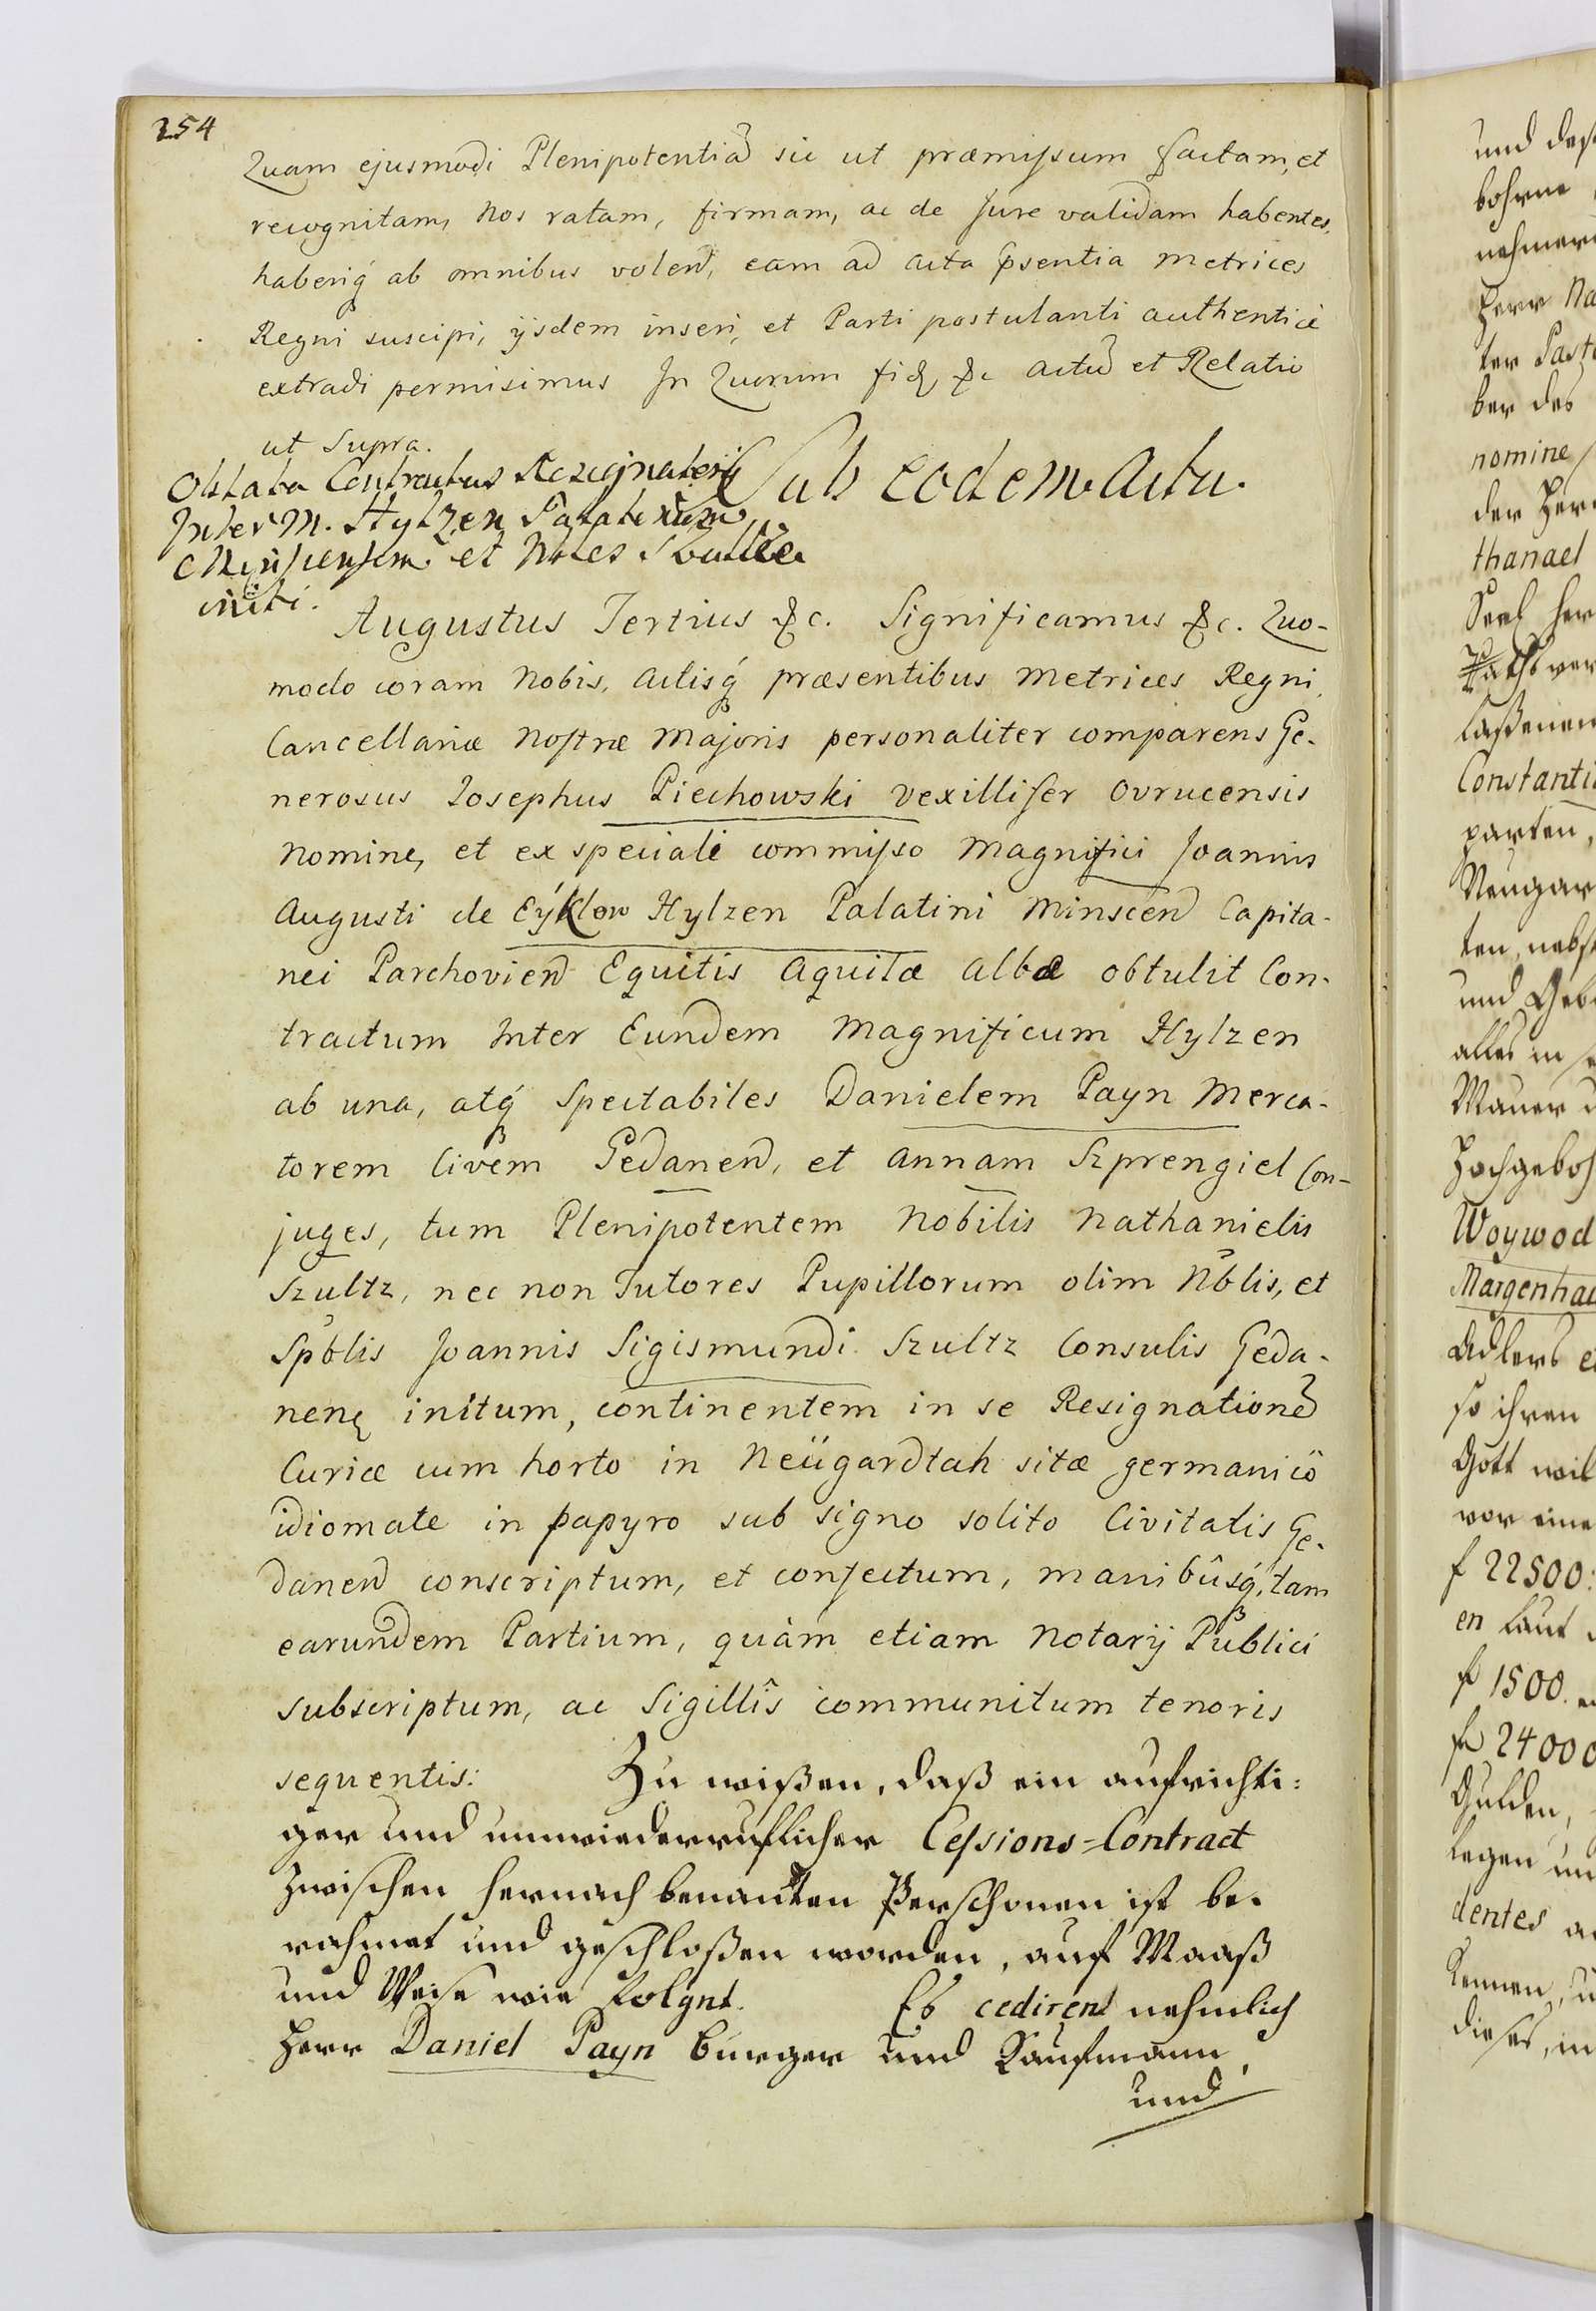 254
Quam ejusmodi Plenipotentiã sic ut præmissum factam, et
recognitam, Nos ratam, firmam, ac de Jure validam habentes,
haberiq́ ab omnibus volen̄, eam ad Acta p̃sentia Metrices
Regni suscipi, ijsdem inseri, et Parti postulanti authenticè
extradi permisimus In Quorum fid, &c Actũ et Relatio
ut Supra.
Sub eodem Actu.
Oblata Contractus Resignatorij
Inter M. Hylzen Palatinum
Minscensem et Nbles Szultze
initi.
Augustus Tertius &c. Significamus &c. Quo-
modo coram Nobis, Actisq́ præsentibus Metrices Regni
Cancellariæ Nostræ Majoris personaliter comparens Ge-
nerosus Josephus Piechowski Vexillifer Ovrucensis
Nomine, et ex speciali commisso Magnifici Joannis
Augusti de Eýklow Hylzen Palatini Minscen̄ Capita-
nei Parchovien̄ Equitis Aquilæ Albæ obtulit Con-
tractum Inter Eundem Magnificum Hylzen
ab una, atq́ Spectabiles Danielem Payn Merca-
torem Civem Gedanen̄, et Annam Szprengiel Con-
juges, tum Plenipotentem Nobilis Nathanielis
Szultz, nec non Tutores Pupillorum olim Nblis, et
Spblis Joannis Sigismundi Szultz Consulis Geda-
nen, initum, continentem in se Resignationẽ
Curiæ cum horto in Neügardtah sitæ germanicô
idiomate in papyro sub signo solito Civitatis Ge-
danen̄ conscriptum, et confectum, manibûsq́, tam
earundem Partium, quàm etiam Notarij Publici
subscriptum, ac Sigillîs communitum tenoris
sequentis: Zu wißen, daß ein aufrichti:
ger und unwiederruflicher Cessions-Contract
zwischen hernach benanten Perschonen ist be-
rahmet und geschloßen worden, auf Maaß
und Weise wie folgnt. Es cedirent nehmlich
Herr Daniel Payn Burger und Kaufmann,
und
und
bohrne
nehmen
Herr Na
ter
ber des
nomine
der Herr
thanael
Seel her
Raths
laßenen
Constanti
garten,
Neugar
ten, nebst
und Geb
alles in
Mauer
Hochgeboh
Woywod
Margenhau
Adlers
so ihren
Gott
vor eine
f 22500:
en laut
f 1500.
f 24000
Gulden,
legen und
dentes
kennen,
dieses,